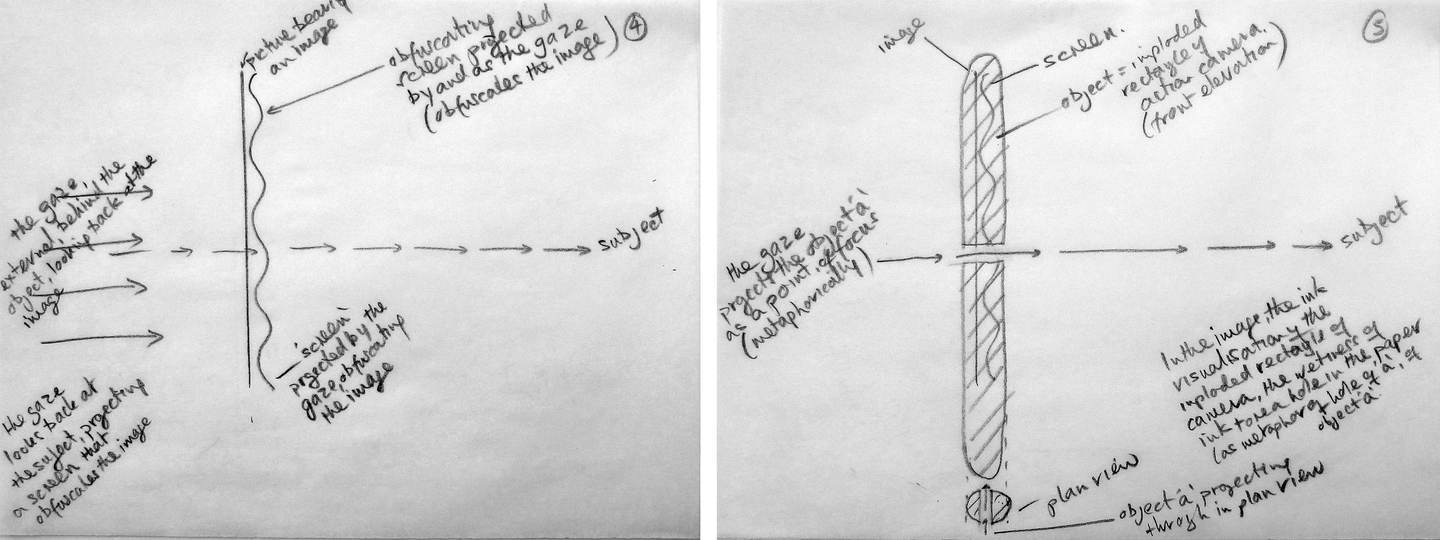 picture bearing
an image
obfuscating
screen projected
by and as the gaze
(obfuscates the image)
4
the gaze,
external, behind the
object, looking back at the
image
subject
'screen'
projected by the
gaze, obfuscating
the image
the gaze
looks back at
the subject, projecting
a screen that
obfuscates the image
image
screen.
object = imploded
rectagle of
action camera.
(front elevation)
5
the gaze
projects the object 'a'
as a point of focus
(metaphorically)
subject
In the image, the ink
visualisation of the
imploded rectagle of
camera, the wetness of
ink tore a hole in the paper
(as metaphor of hole of 'a', of
object 'a'.
plan view
object 'a' projecting
through in plan view